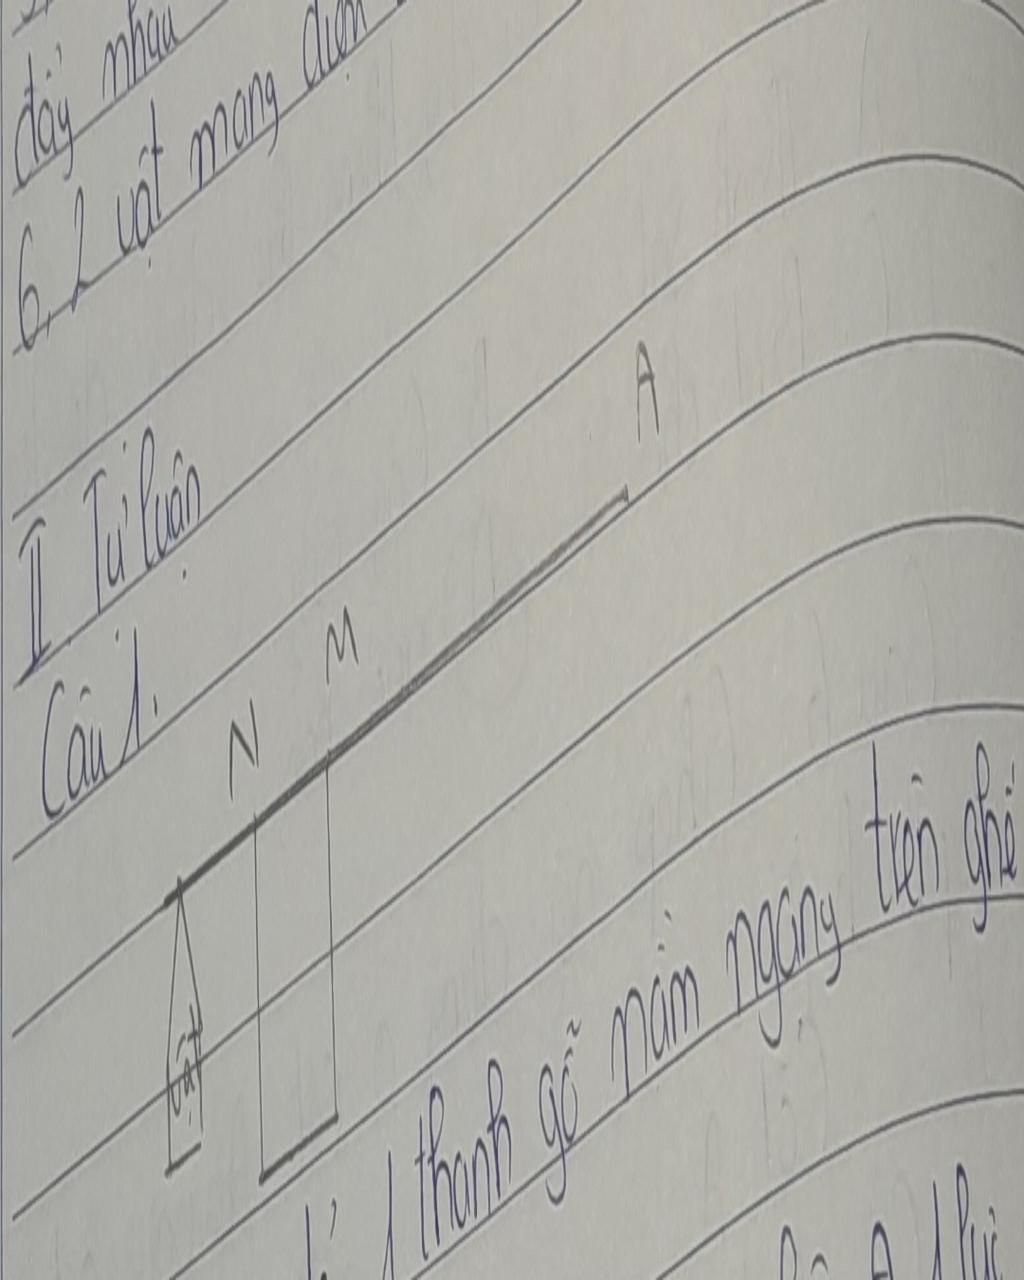 đẩy nhau
6, 2 vật mang điện
II. Tự luận
Câu 1.
A
M
N
vật
1 thanh gỗ nằm ngang trên ghế
A 1 lực